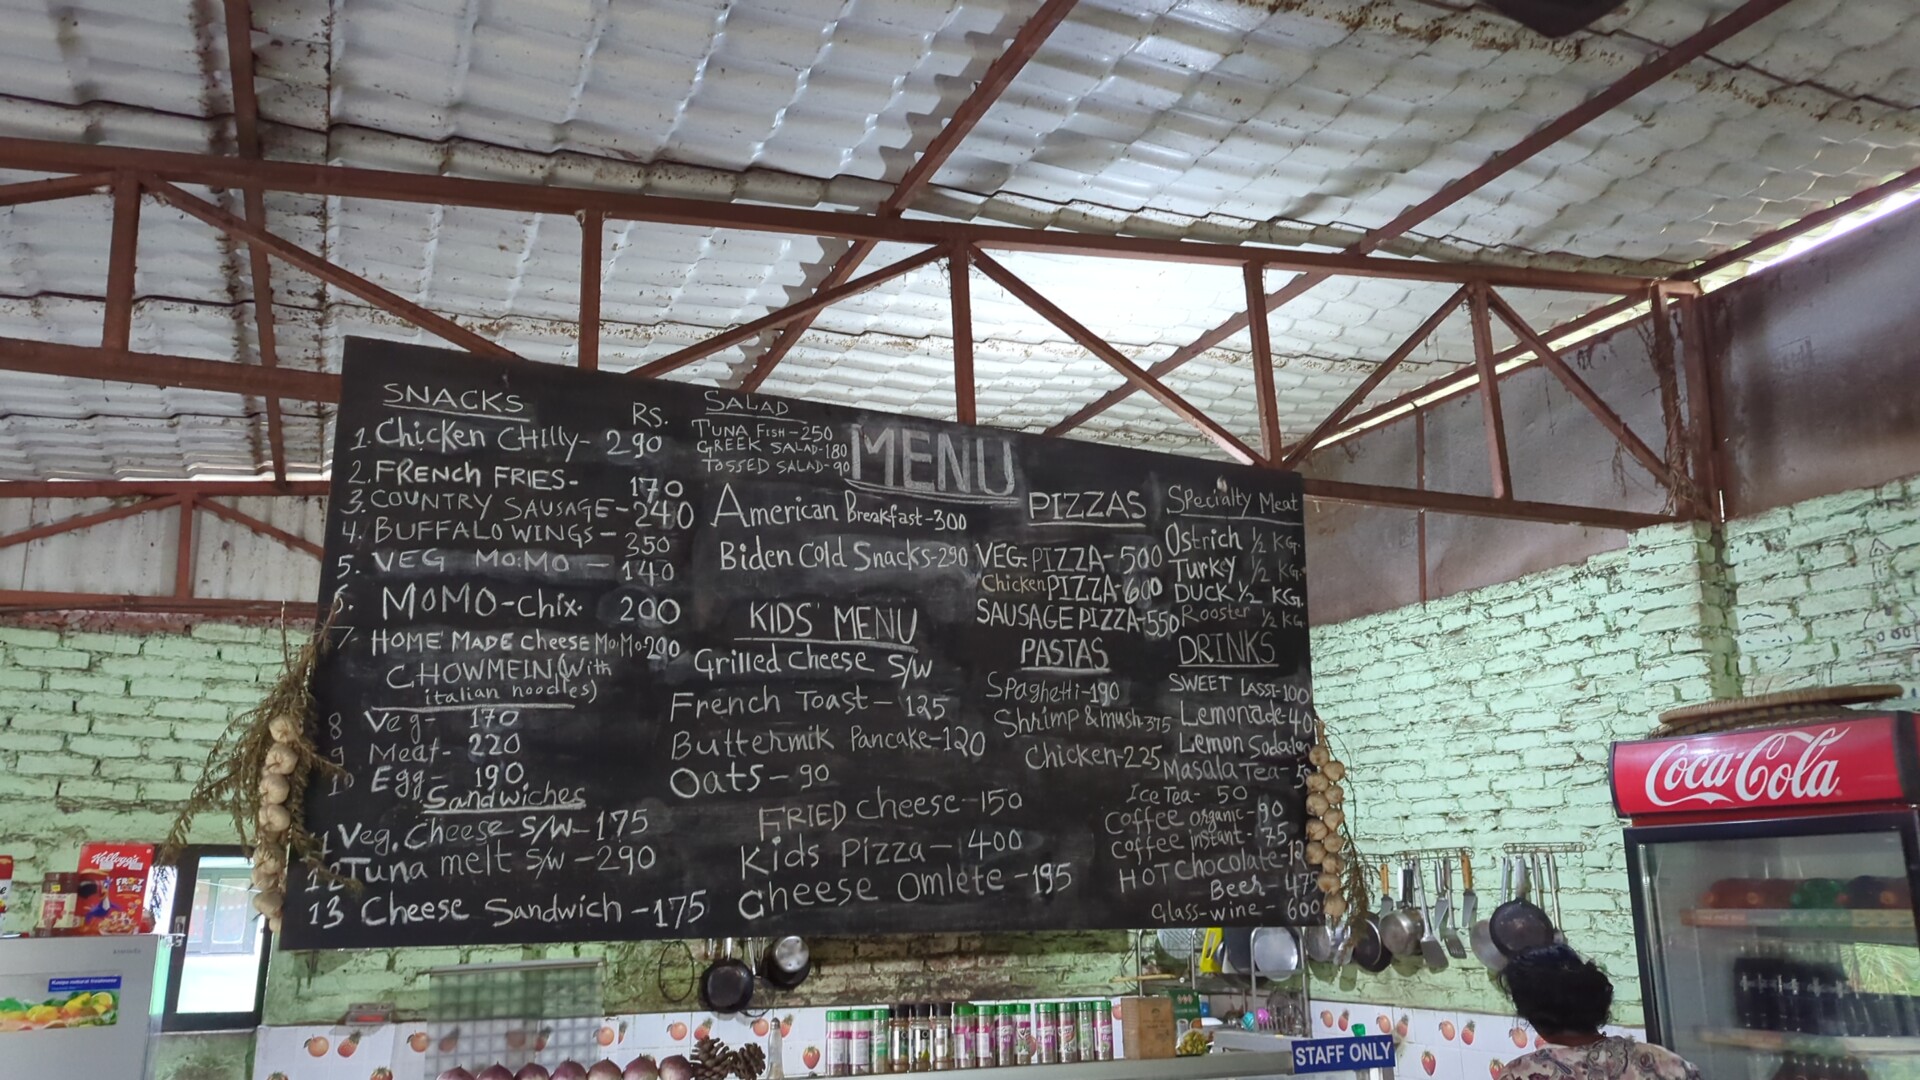 SNACKS
RS.
1. Chicken CHilly- 290
2. FRENCH FRIES- 170
3. COUNTRY SAUSAGE-240
4. BUFFALO WINGS- 350
5. VEG MO:MO - 140
6. MOMO-Chix. 200
7- HOME MADE Cheese Mo:Mo-200
CHOWMEIN (with
italian noodles)
8 Veg- 170
9 Meat- 220
10 Egg- 190
Sandwiches
Veg. Cheese S/W-175
12 Tuna melt S/W-290
13 Cheese Sandwich-175
SALAD
TUNA FISH-250
GREEK SALAD-180
TOSSED SALAD-90
MENU
American Breakfast-300
Biden Cold Snacks-290
KIDS' MENU
Grilled Cheese S/W
French Toast- 125
Buttermik Pancake-120
Oats- 90
FRIED Cheese-150
Kids Pizza- 400
Cheese Omlete-195
PIZZAS
VEG. PIZZA-500
Chicken PIZZA-600
SAUSAGE PIZZA-550
PASTAS
Spaghetti-190
Shrimp & mush-375
Chicken-225
Specialty Meat
Ostrich ½ KG.
Turkey ½ KG.
DUCK ½ KG.
Rooster ½ KG.
DRINKS
SWEET LASSI-100
Lemonade-40
Lemon Soda
Masala Tea-
Ice Tea- 50
Coffee organic-90
Coffee instant-75
HOT Chocolate-
Beer-475
Glass-wine-600
Coca-Cola
Kellogg's
FROOT
LOOPS
STAFF ONLY